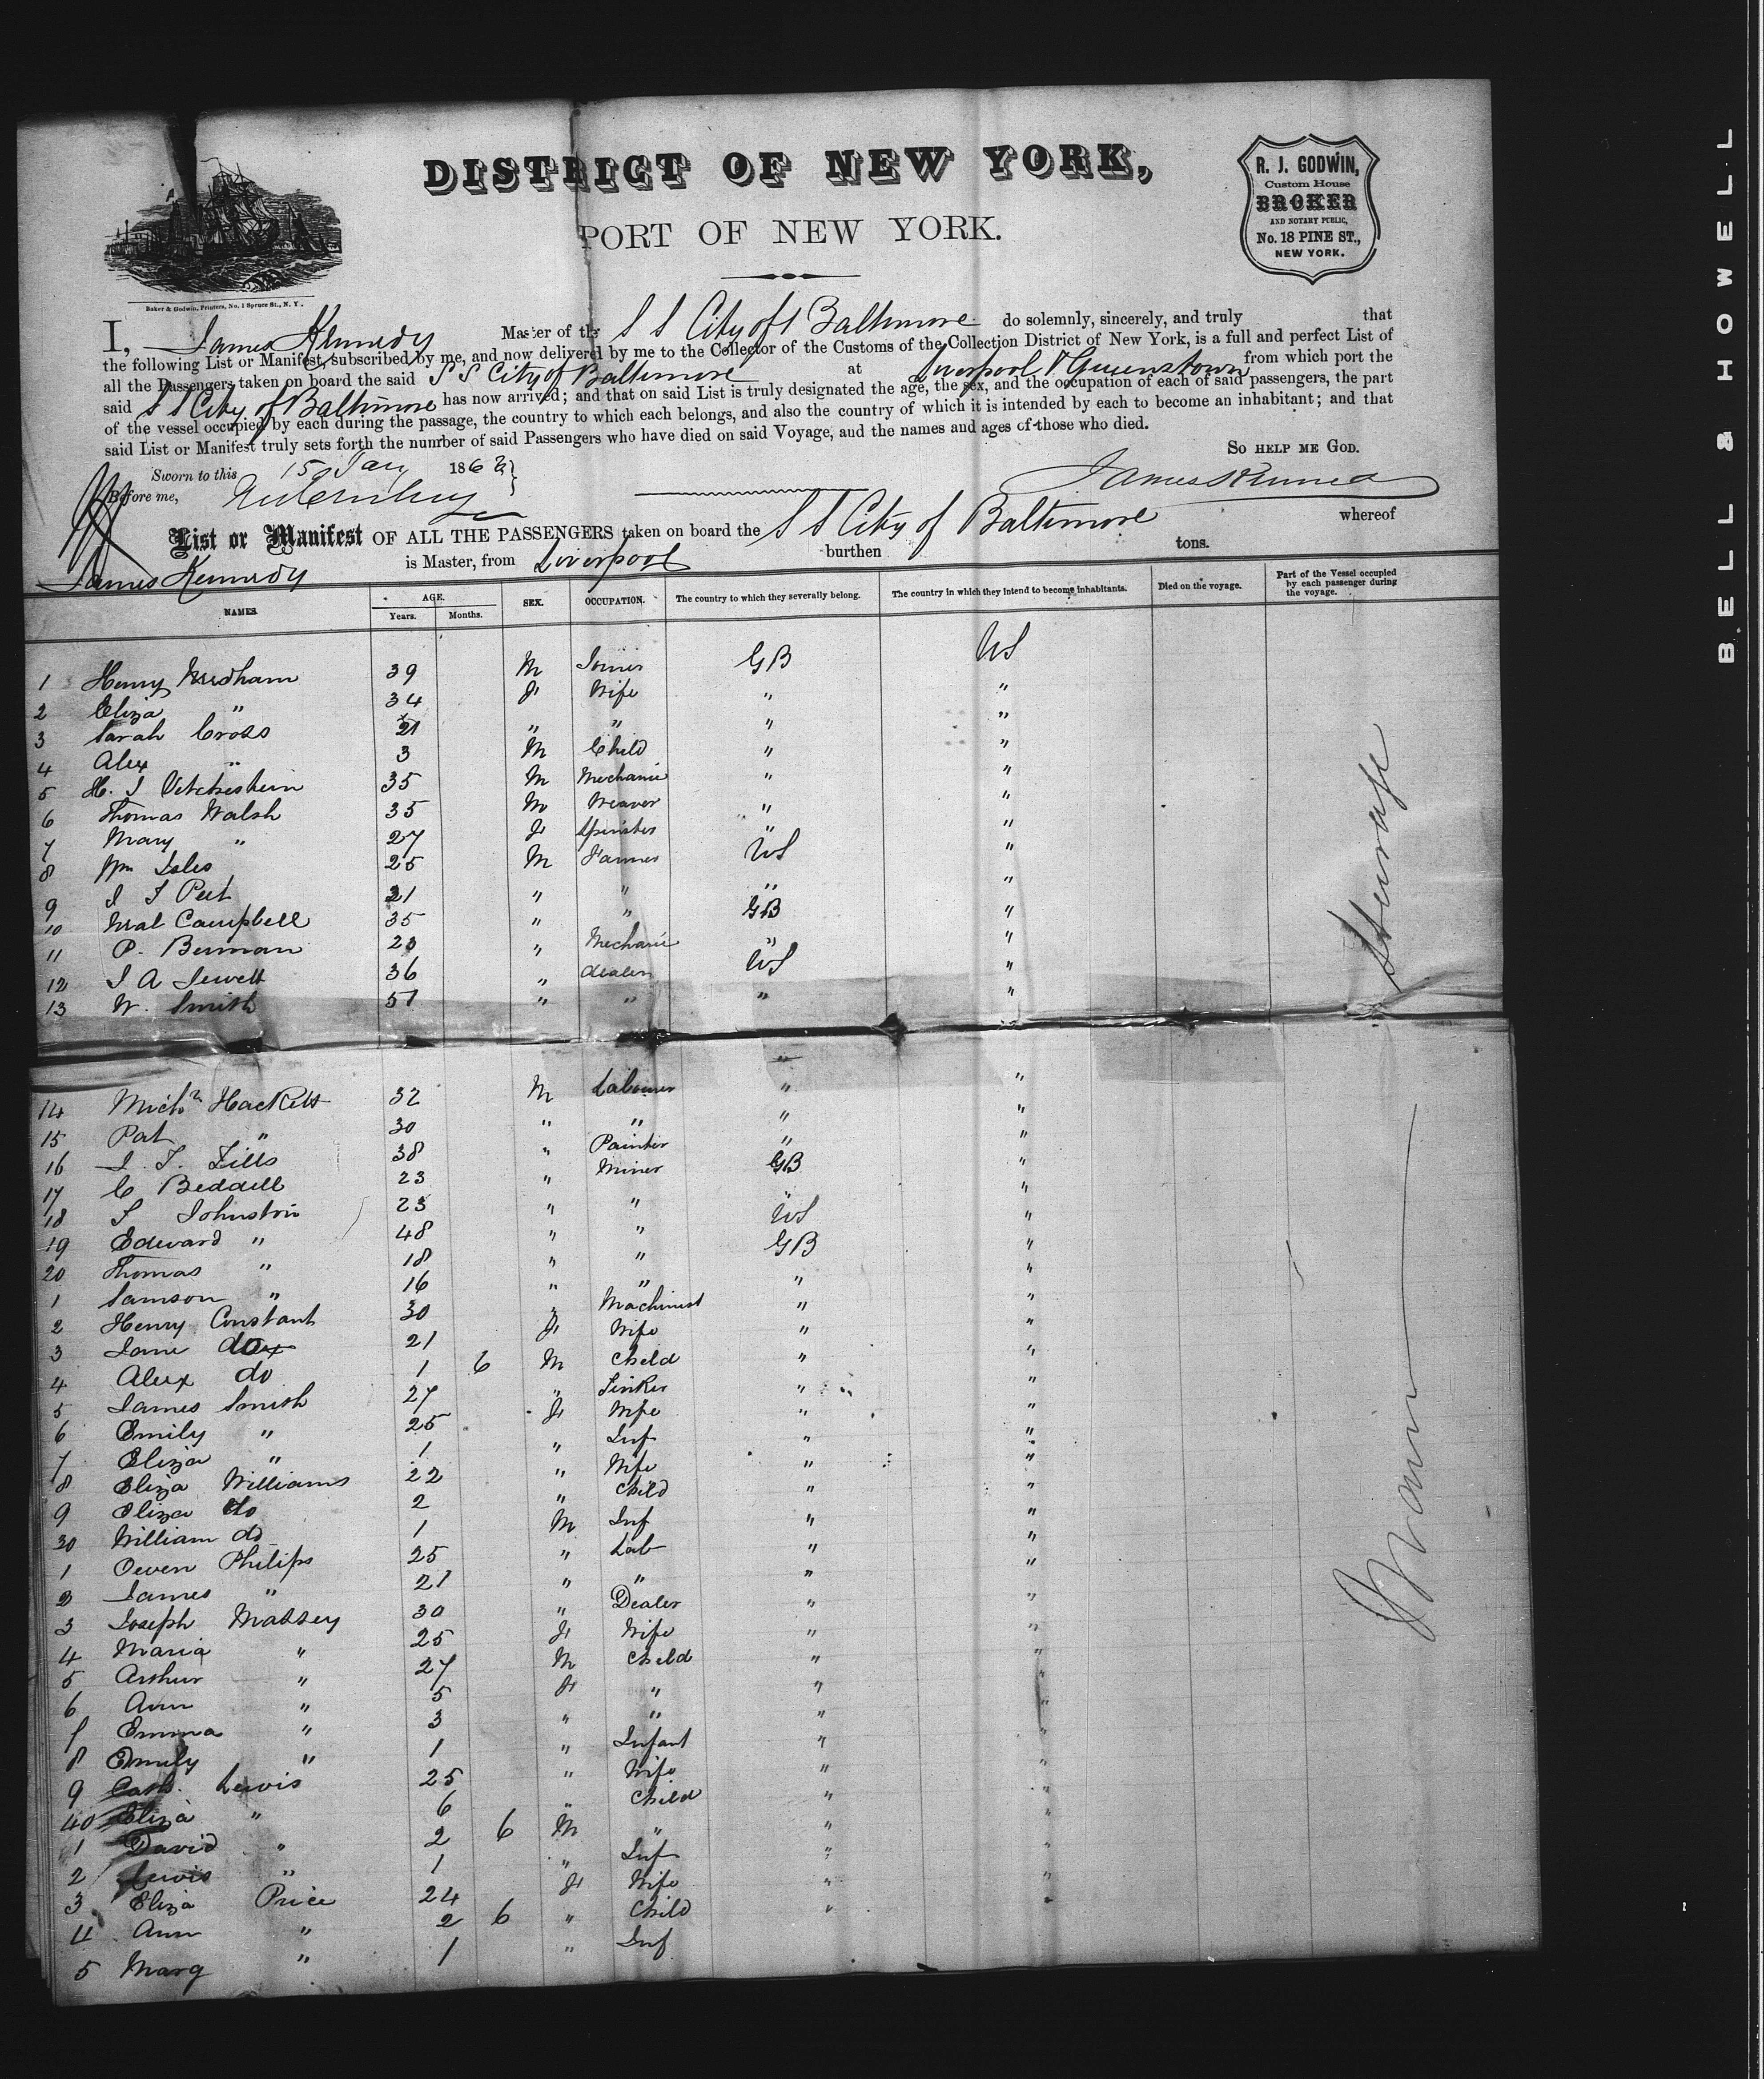 DISTRICT OF NEW YORK,
PORT OF NEW YORK.
R. J. GODWIN,
Custom House
BROKER
AND NOTARY PUBLIC,
No. 18 PINE ST.,
NEW YORK.
Baker & Godwin, Printers, No. 1 Spruce St., N. Y.
I, James Kennedy Master of the S S City of Baltimore do solemnly, sincerely, and truly that
the following List or Manifest, subscribed by me, and now delivered by me to the Collector of the Customs of the Collection District of New York, is a full and perfect List of
all the Passengers taken on board the said S S City of Baltimore at Liverpool & Queenstown from which port the
said S S City of Baltimore has now arrived; and that on said List is truly designated the age, the sex, and the occupation of each of said passengers, the part
of the vessel occupied by each during the passage, the country to which each belongs, and also the country of which it is intended by each to become an inhabitant; and that
said List or Manifest truly sets forth the number of said Passengers who have died on said Voyage, and the names and ages of those who died.
SO HELP ME GOD.
Sworn to this 15 Jany 186
Before me, James Kennedy
List or Manifest OF ALL THE PASSENGERS taken on board the S S City of Baltimore whereof
James Kennedy is Master, from Liverpool burthen tons.
NAMES. AGE. Years. Months. SEX. OCCUPATION. The country to which they severally belong. The country in which they intend to become inhabitants. Died on the voyage. Part of the Vessel occupied by each passenger during the voyage.
1 Henry 39 M Joiner GB US
2 Eliza " 34 F Wife " "
3 Sarah Cross 21 " " " "
4 Alex " 3 M Child " "
5 H. 35 M Mechanic " "
6 Thomas Walsh 35 M Weaver " "
7 Mary " 27 F Spinster " "
8 Wm Isles 25 M Farmer US "
9 Peet 21 " " " "
10 Campbell 35 " " GB "
11 P. Berman " Mechanic " "
12 J A Jewett 36 " dealer US "
13 W. Smith 51 " " " "
Steerage
14 Michl Hackett 32 M Labourer " "
15 Pat " 30 " " " "
16 38 " Painter " "
17 C Beddell 23 " Miner GB "
18 Johnston 23 " " " "
19 Edward " 48 " " US "
20 Thomas " 18 " " GB "
1 Samson " 16 " " " "
2 Henry Constant 30 " Machinist " "
3 Jane do 21 F Wife " "
4 Alex do 1 6 M Child " "
5 James Smith 27 " Tinker " "
6 Emily " 25 F Wife " "
7 Eliza " 1 " Inf " "
8 Eliza Williams 22 " Wife " "
9 Eliza do 2 " Child " "
30 William do 1 M Inf " "
1 Owen Philips 25 " Lab " "
2 James " 21 " " " "
3 Joseph Massey 30 " Dealer " "
4 Maria " 25 F Wife " "
5 Arthur " 27 M Child " "
6 Ann " 5 F " " "
7 Emma " 3 " " " "
8 Emily " 1 " Infant " "
9 Cath. Lewis 25 " Wife " "
40 Eliza " 6 " Child " "
1 David " 2 6 M " " "
2 Lewis " 1 " Inf " "
3 Eliza Price 24 F Wife " "
4 Ann " 2 6 " Child " "
5 Marg " 1 " Inf
BELL & HOWELL